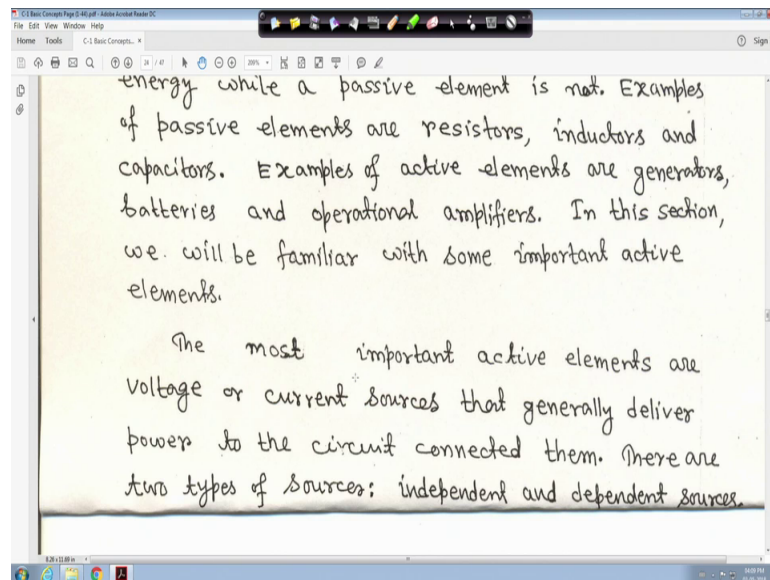 C-1 Basic Concepts Page (1-44).pdf - Adobe Acrobat Reader DC
File Edit View Window Help
Home Tools C-1 Basic Concepts... × Sign
energy while a passive element is not. Examples
of passive elements are resistors, inductors and
capacitors. Examples of active elements are generators,
batteries and operational amplifiers. In this section,
we will be familiar with some important active
elements.
The most important active elements are
voltage or current sources that generally deliver
power to the circuit connected them. There are
two types of sources: independent and dependent sources.
8.26 x 11.69 in